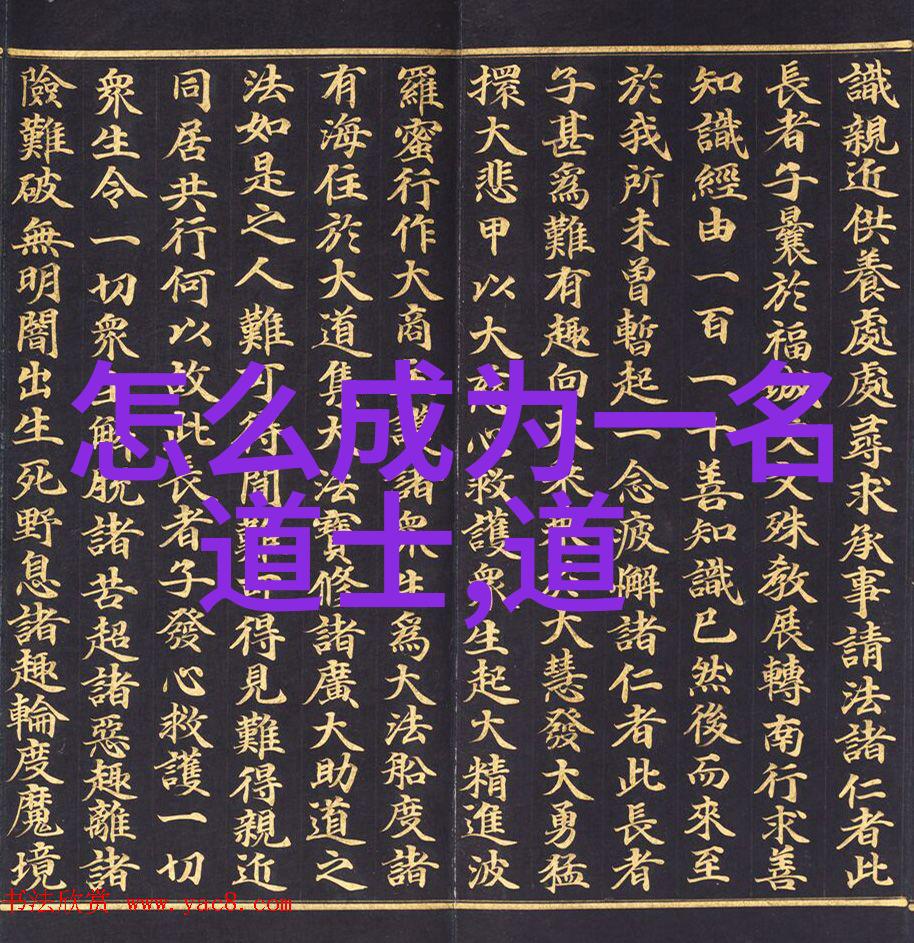 識親近供養處處尋求承事請法諸仁者此
長者子曩於福城文殊教展轉南行求善
知識經由一百一十善知識已然後而來至
於我所未曾暫起一念疲懈諸仁者此長者
子甚爲難有趣向大於大慧發大勇猛
擐大悲甲以大慈心救護衆生起大精進波
羅蜜行作大商主護諸衆生爲大法船度諸
有海住於大道集大法寶修諸廣大助道之
法如是之人難可得聞難可得見難得親近
同居共行何以故此長者子發心救護一切
衆生令一切衆生解脫諸苦超諸惡趣離諸
險難破無明闇出生死野息諸趣輪度魔境
怎么成为一名
道士,道
书法欣赏 www.yac8.com